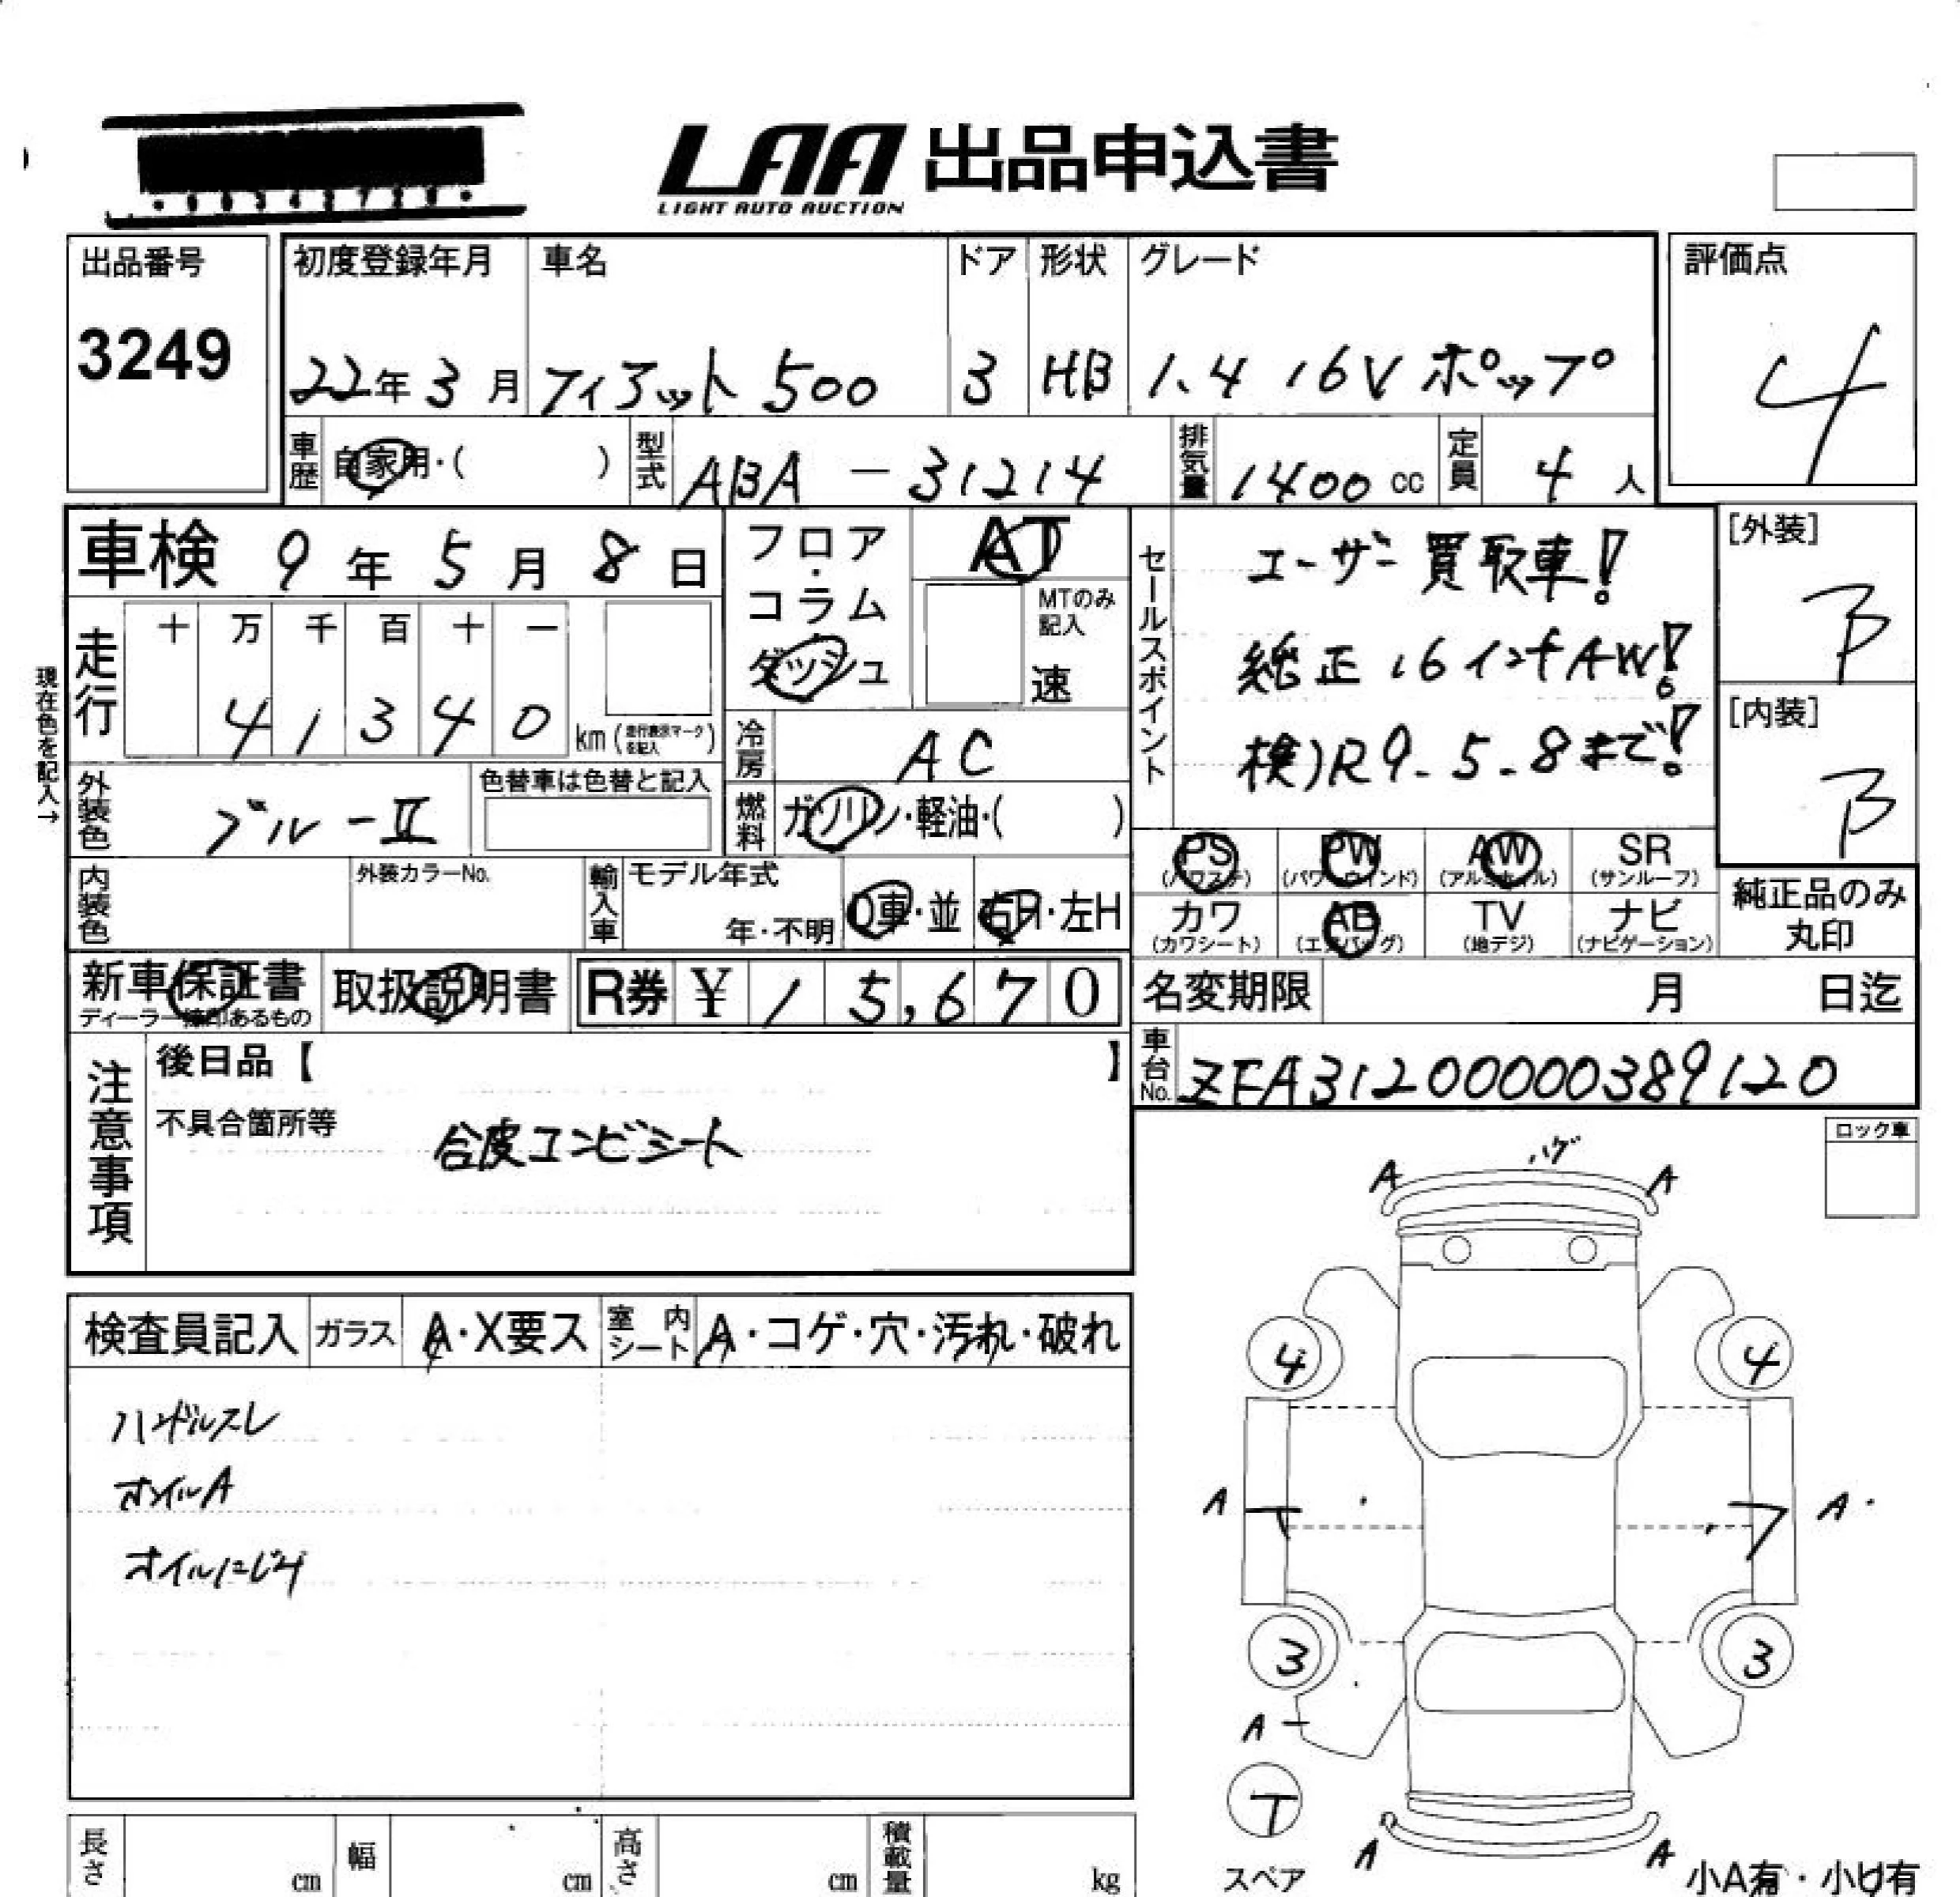 LAA 出品申込書
LIGHT AUTO AUCTION
出品番号
3249
初度登録年月 車名 ドア 形状 グレード
22年 3月 フィアット 500 3 HB 1.4 16V ポップ
評価点
4
車歴 自家用・( ) 型式 ABA - 31214 排気量 1400 cc 定員 4 人
車検 9 年 5 月 8 日
現在色を記入→
走行 十 万 千 百 十 一
4 1 3 4 0 km (走行表示マークを記入)
フロア・コラム
ダッシュ
AT
MTのみ記入
速
冷房 AC
燃料 ガソリン・軽油・( )
外装色 ブルーII 色替車は色替と記入
内装色 外装カラーNo.
輸入車 モデル年式
年・不明 D車・並 右H・左H
セールスポイント
ユーザー買取車!
純正16インチAW!
検)R9-5-8まで!
[外装]
B
[内装]
B
PS (パワステ) PW (パワーウインド) AW (アルミホイル) SR (サンルーフ)
カワ (カワシート) AB (エアバッグ) TV (地デジ) ナビ (ナビゲーション)
純正品のみ
丸印
新車保証書 取扱説明書 R券 ¥ 15,670
ディーラー捺印あるもの
名変期限 月 日迄
車台No. ZFA31200000389120
注意事項
後日品【 】
不具合箇所等
合皮コンビシート
ロック車
検査員記入 ガラス A・X要ス 室内シート A・コゲ・穴・汚れ・破れ
ハンドルスレ
オイルA
オイルにじみ
ハゲ
A A
4 4
A A
3 3
A
T
スペア
A A
小A有・小U有
長さ cm 幅 cm 高さ cm 積載量 kg